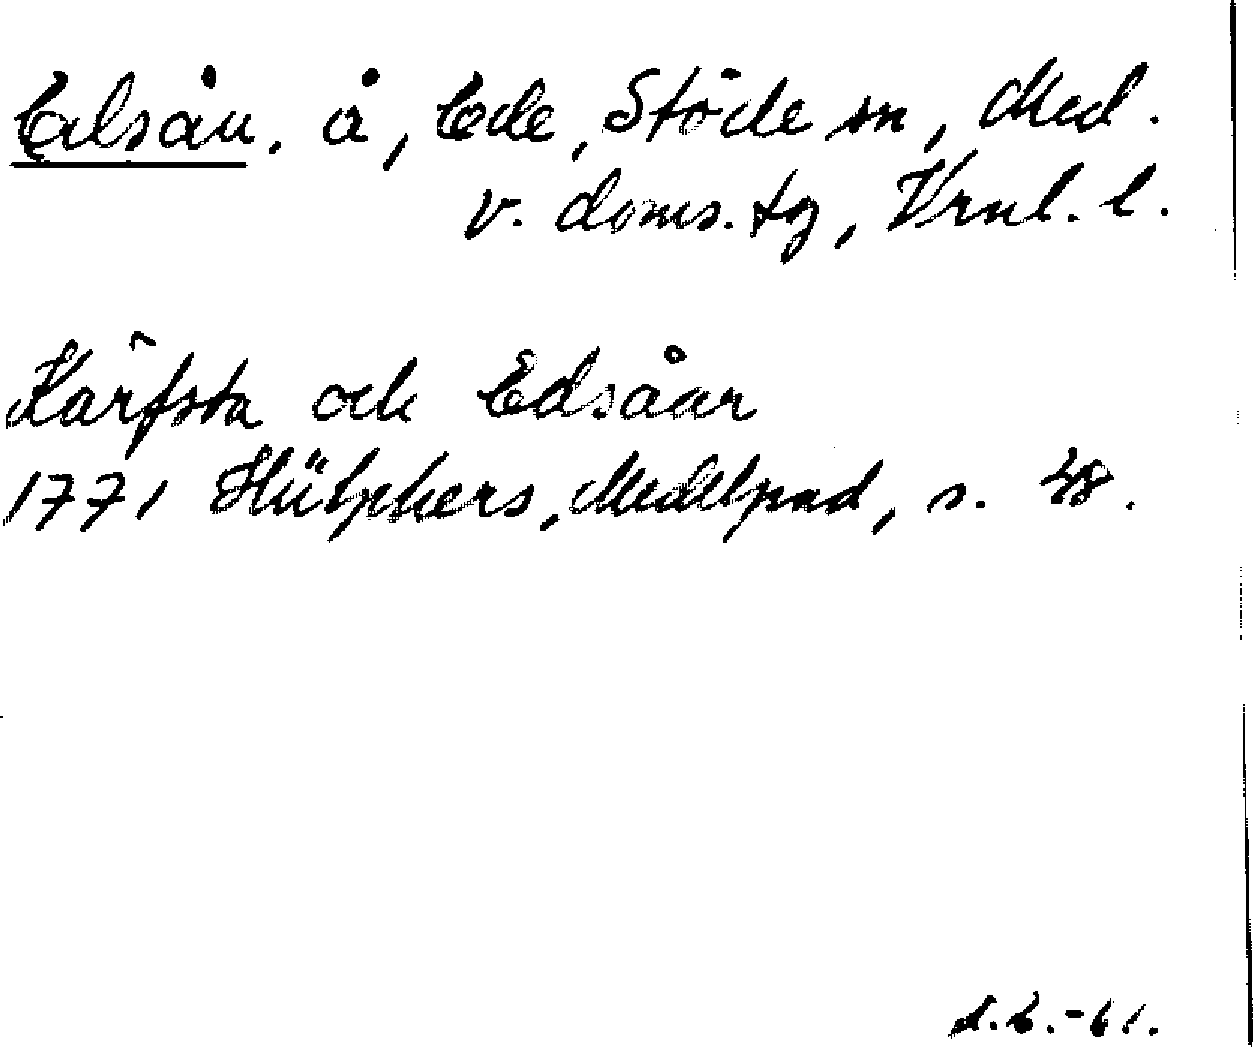 Edsån, å, Ede, Stöde sn, Med.
v. doms. tg, Vrnl. l.
Kärfsta och Edsåar
1771 Hülphers, Medelpad, s. 48.
-61.